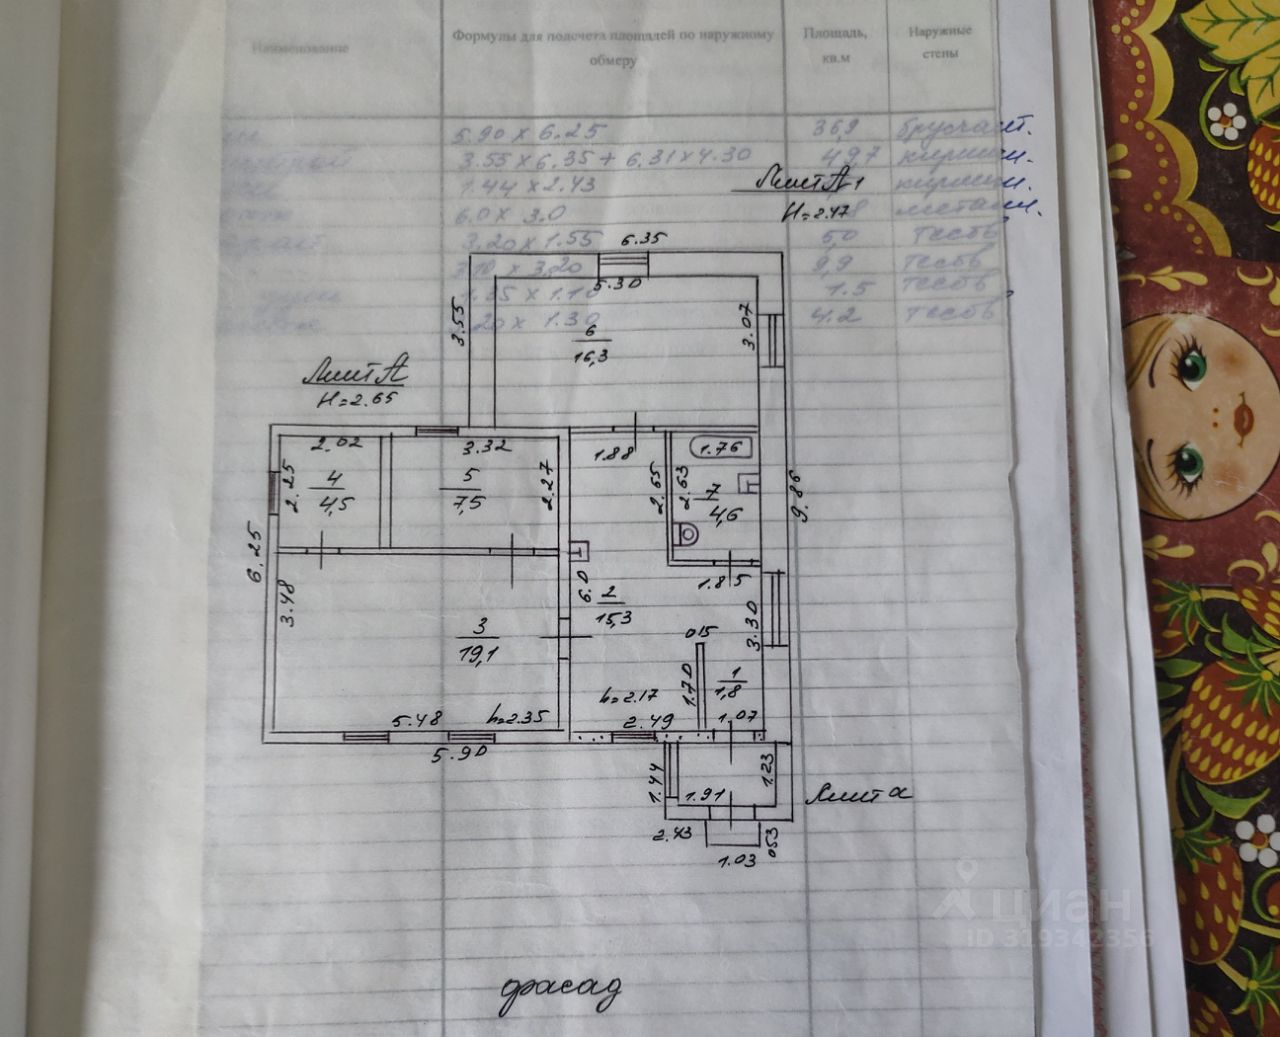 Наименование
Формулы для подсчета площадей по наружному
обмеру
Площадь,
кв.м
Наружные
стены
5.90 x 6.25
36,9
брусчат.
3.55 x 6.35 + 6.31 x 4.30
49,7
кирпич.
1.44 x 2.43
кирпич.
6.0 x 3.0
металл.
3.20 x 1.55
5,0
тесов
3.10 x 3.20
9,9
тесов
1.35 x 1.10
1.5
тесов
20 x 1.30
4.2
тесов
Лит А1
H=2.47
6.35
5.30
3.55
3.07
6
16,3
Лит А
H=2.65
2.02
3.32
1.88
1.76
2.25
4
4,5
5
7,5
2.27
2.65
2.63
7
4,6
9.86
6.25
3.48
6.0
2
15,3
1.85
3.30
3
19,1
015
1.70
1
1,8
5.48
h=2.35
h=2.17
2.49
1.07
5.90
1.44
1.91
1.23
Лит а
2.43
1.03
053
циан
ID 319342356
фасад